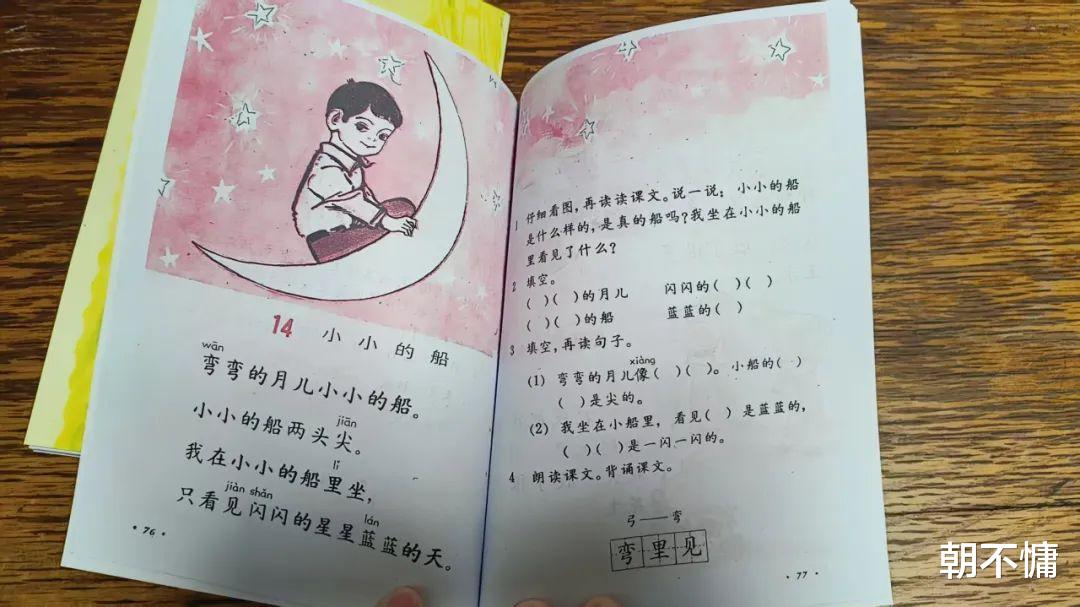 14 小小的船
wān
弯弯的月儿小小的船。
jiān
小小的船两头尖。
lǐ
我在小小的船里坐，
jiàn shǎn lán
只看见闪闪的星星蓝蓝的天。
· 76 ·
1 仔细看图，再读读课文。说一说：小小的船
是什么样的，是真的船吗？我坐在小小的船
里看见了什么？
2 填空。
( )( )的月儿 闪闪的( )( )
( )( )的船 蓝蓝的( )
3 填空，再读句子。
xiàng
(1) 弯弯的月儿像( )( )。小船的( )
( )是尖的。
(2) 我坐在小船里，看见( )是蓝蓝的，
( )( )是一闪一闪的。
4 朗读课文。背诵课文。
弓——弯
弯里见
· 77 ·
朝不慵